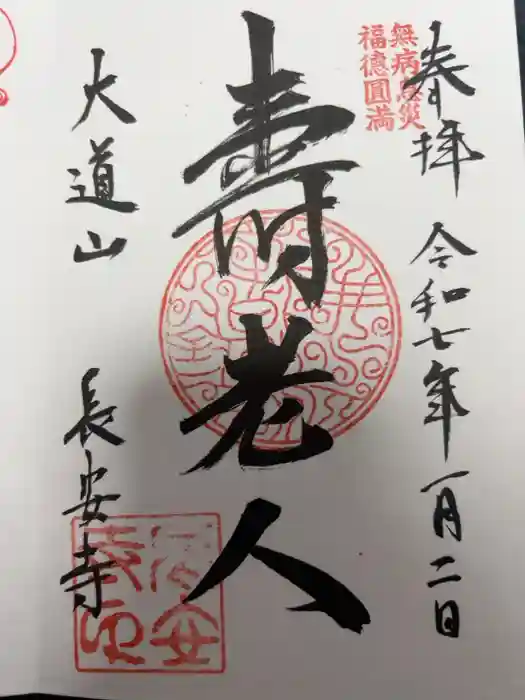 奉拝
令和七年一月二日
無病息災
福徳圓満
壽老人
大道山
長安寺